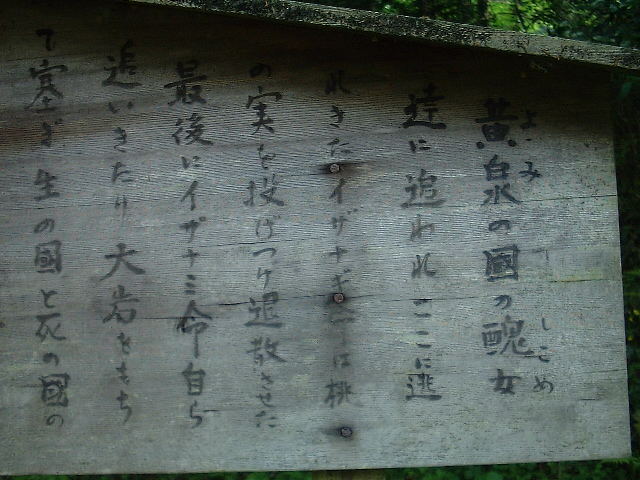 よみ しこめ
黄泉の國の醜女
達に追われここに逃
れきたイザナギは桃
の実を投げつけ退散させた
最後にイザナミ命自ら
追いきたり大岩をもち
て塞ぎ生の國と死の國の